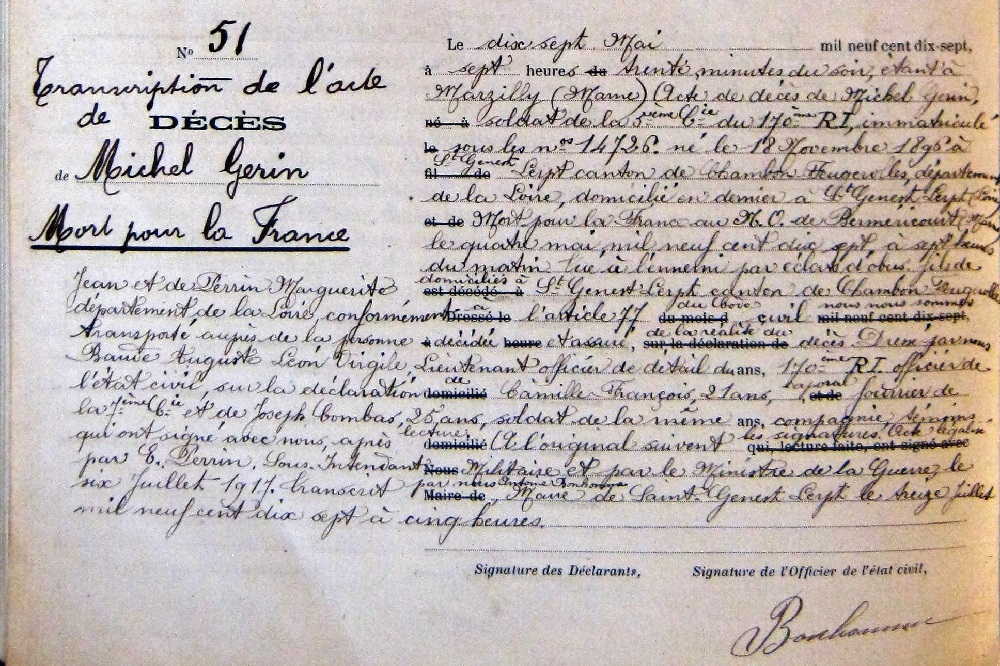 N° 51
Transcription de l'acte
de DÉCÈS
de Michel Gerin
Mort pour la France
Le dix sept Mai mil neuf cent dix-sept,
à sept heures du trente minutes du soir, étant à
Marzilly (Marne) (Acte de décès de Michel Gerin,
né à soldat de la 5ème Cie du 170ème RI, immatriculé
le sous les nos 14726. né le 18 Novembre 1896 à
St Genest
fil de Lerpt canton de Chambon Feugerolles, département
de la Loire, domicilié en dernier à St Genest Lerpt (Loire
et de Mort pour la France au N.O. de Bermericourt (Marne
le quatre mai, mil neuf cent dix sept, à sept heures
du matin tué à l'ennemi par éclats d'obus. fils de
Jean et de Perrin Marguerite domiciliés à
est décédé à St Genest Lerpt canton de Chambon Feugerolles
département de la Loire, conformément à
Dressé le l'article 77 du mois d du Code civil mil neuf cent dix-sept, nous nous sommes
transporté auprès de la personne à décidée heure et assuré, sur la déclaration de de la réalité du décès. Dressé par nous
Baude Auguste Léon Virgile, Lieutenant officier de détail du ans, 170ème RI. officier de
l'état civil, sur la déclaration domicilié de Camille François, 21 ans, et de caporal fourrier de
la 7ème Cie et de Joseph Combas, 25 ans, soldat de la même ans, compagnie, témoins
qui ont signé avec nous, après lecture. domicilié (A l'original suivent qui, lecture faite, ont signé avec les signatures. Acte légalisé
par E. Perrin, Sous Intendant Nous Militaire et par le Ministre de la Guerre, le
six Juillet 1917. Transcrit par nous Antoine Bonhomme
Maire de Maire de Saint-Genest Lerpt le treize Juillet
mil neuf cent dix sept à cinq heures.
Signature des Déclarants, Signature de l'Officier de l'état civil,
Bonhomme